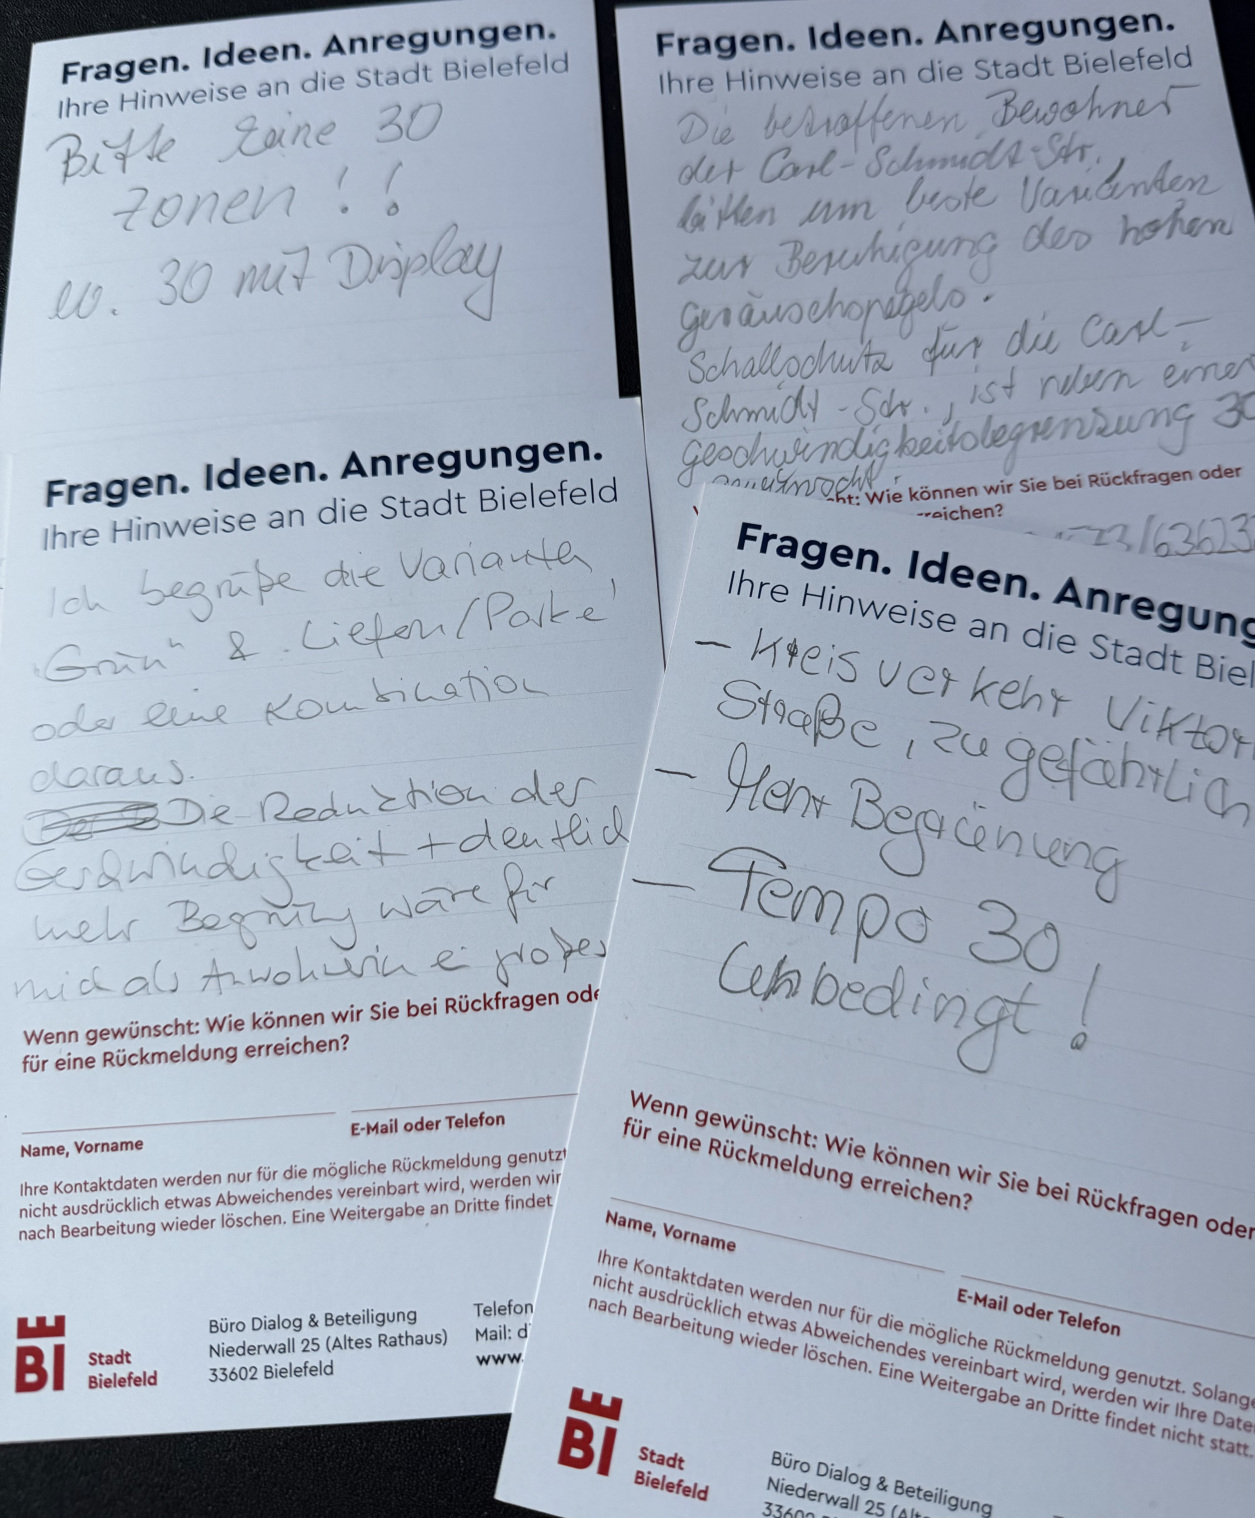 Fragen. Ideen. Anregungen.
Ihre Hinweise an die Stadt Bielefeld
Bitte keine 30
Zonen!!
w. 30 mit Display
Fragen. Ideen. Anregungen.
Ihre Hinweise an die Stadt Bielefeld
Die betroffenen Bewohner
der Carl-Schmidt-Str.
bitten um beste Varianten
zur Beruhigung des hohen
Geräuschpegels.
Schallschutz für die Carl-
Schmidt-Str., ist neben einer
Geschwindigkeitsbegrenzung 30
erwünscht.
ht: Wie können wir Sie bei Rückfragen oder
reichen?
Fragen. Ideen. Anregungen.
Ihre Hinweise an die Stadt Bielefeld
Ich begrüße die Variante
"Grün" & Liefern/Parke
oder eine Kombination
daraus.
Die Reduktion der
Geschwindigkeit + deutlich
mehr Begrünung wäre für
mich als Anwohnerin ei großes
Wenn gewünscht: Wie können wir Sie bei Rückfragen ode
für eine Rückmeldung erreichen?
Name, Vorname
E-Mail oder Telefon
Ihre Kontaktdaten werden nur für die mögliche Rückmeldung genutzt
nicht ausdrücklich etwas Abweichendes vereinbart wird, werden wir
nach Bearbeitung wieder löschen. Eine Weitergabe an Dritte findet
BI
Stadt
Bielefeld
Büro Dialog & Beteiligung
Niederwall 25 (Altes Rathaus)
33602 Bielefeld
Telefon
Mail: d
www.
Fragen. Ideen. Anregung
Ihre Hinweise an die Stadt Biel
- Kreisverkehr Viktor
Straße, zu gefährlich
- Mehr Begrünung
- Tempo 30
Unbedingt!
Wenn gewünscht: Wie können wir Sie bei Rückfragen oder
für eine Rückmeldung erreichen?
Name, Vorname
E-Mail oder Telefon
Ihre Kontaktdaten werden nur für die mögliche Rückmeldung genutzt. Solange
nicht ausdrücklich etwas Abweichendes vereinbart wird, werden wir Ihre Date
nach Bearbeitung wieder löschen. Eine Weitergabe an Dritte findet nicht statt.
BI
Stadt
Bielefeld
Büro Dialog & Beteiligung
Niederwall 25 (Alte
33602